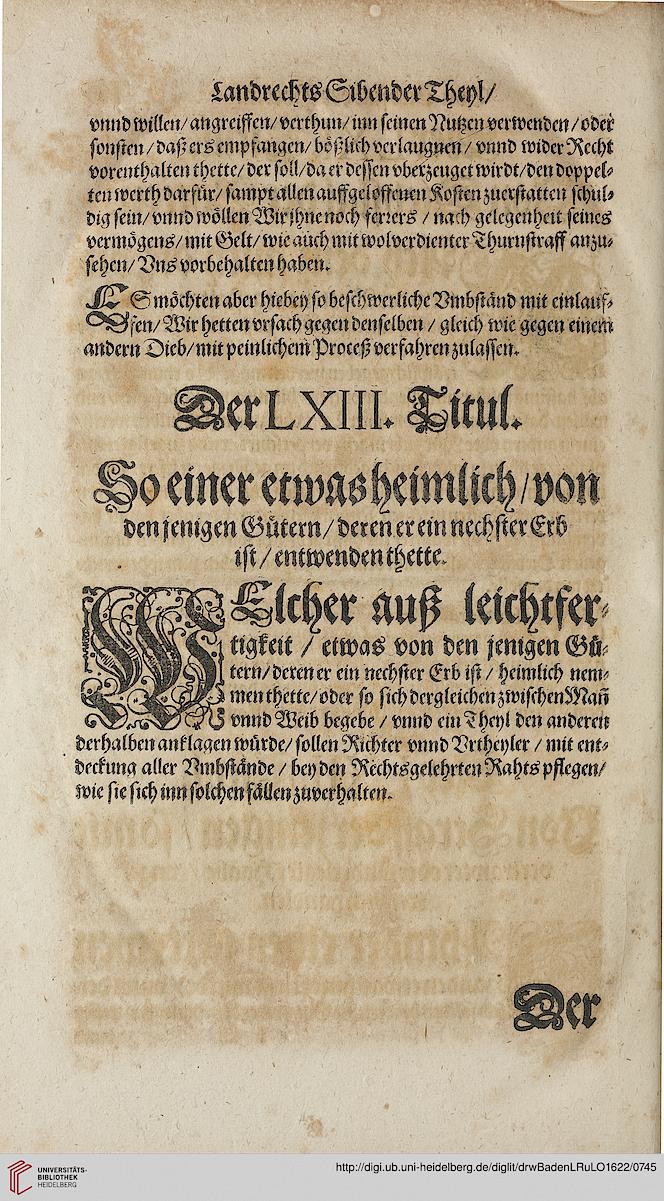 Landrechts Sibender Theyl/
vnnd willen/ angreiffen/ verthun/ inn seinen Nutzen verwenden / oder
sonsten / daß ers empfangen/ bößlich verlaugnen / vnnd wider Recht
vorenthalten thette/ der soll/ da er dessen vberzeuget wirdt/ den doppel-
ten werth darfür/ sampt allen auffgeloffenen Kosten zuerstatten schul-
dig sein/ vnnd wöllen Wir jhne noch ferrers / nach gelegenheit seines
vermögens/ mit Gelt/ wie auch mit wolverdienter Thurnstraff anzu-
sehen/ Vns vorbehalten haben.
ES möchten aber hiebey so beschwerliche Vmbständ mit einlauf-
fen/ Wir hetten vrsach gegen denselben / gleich wie gegen einem
andern Dieb/ mit peinlichem Proceß verfahren zulassen.
Der LXIII. Titul.
So einer etwas heimlich/ von
den jenigen Gütern / deren er ein nechster Erb
ist / entwenden thette.
WElcher auß leichtfer-
tigkeit / etwas von den jenigen Gü-
tern/ deren er ein nechster Erb ist / heimlich nem-
men thette/ oder so sich dergleichen zwischen Mañ
vnnd Weib begebe / vnnd ein Theyl den anderen
derhalben anklagen würde/ sollen Richter vnnd Vrtheyler / mit ent-
deckung aller Vmbstände / bey den Rechtsgelehrten Rahts pflegen/
wie sie sich inn solchen fällen zuverhalten.
Der
UNIVERSITÄTS-
BIBLIOTHEK
HEIDELBERG
http://digi.ub.uni-heidelberg.de/diglit/drwBadenLRuLO1622/0745